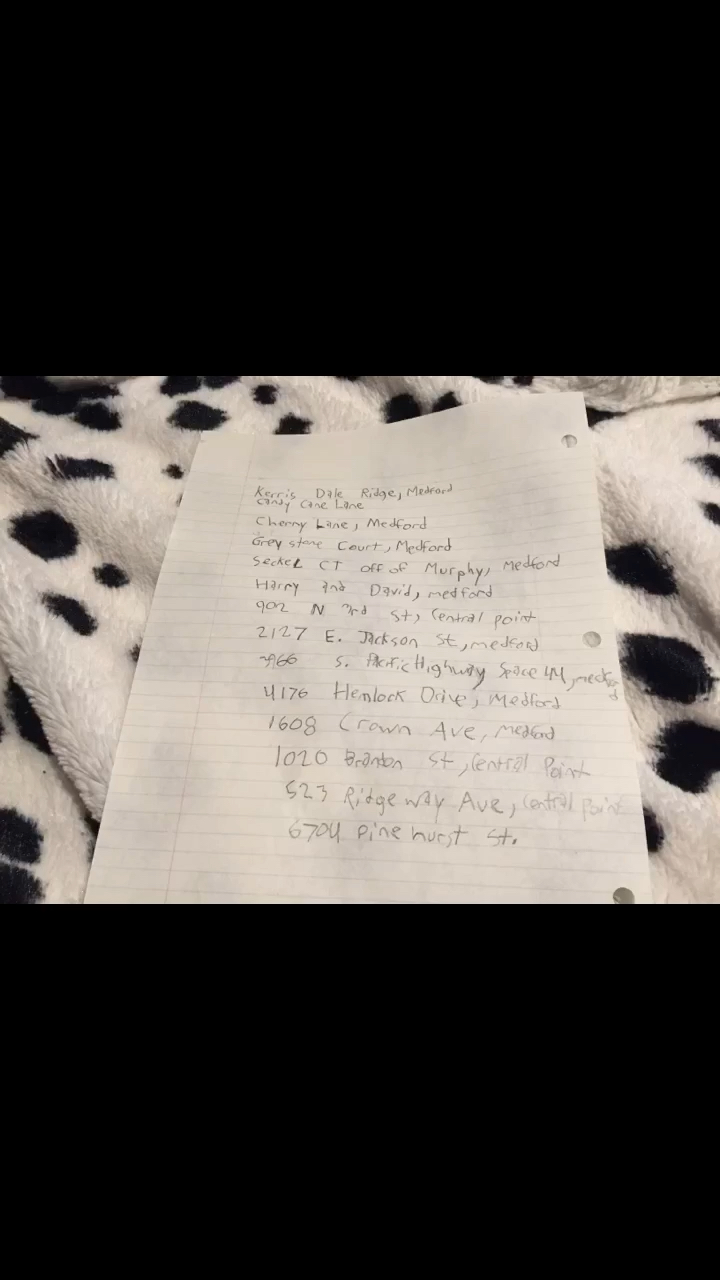 Kerris Dale Ridge, Medford
Candy Cane Lane
Cherry Lane, Medford
Grey stone Court, Medford
Seckel CT off of Murphy, Medford
Harry and David, medford
902 N 3rd St, Central point
2127 E. Jackson St, medford
S. Pacific Highway Space 44, medford
4176 Hemlock Drive, Medford
1608 Crown Ave, Medford
1020 Brandon St, Central Point
523 Ridge way Ave, Central point
6704 pine hurst St.